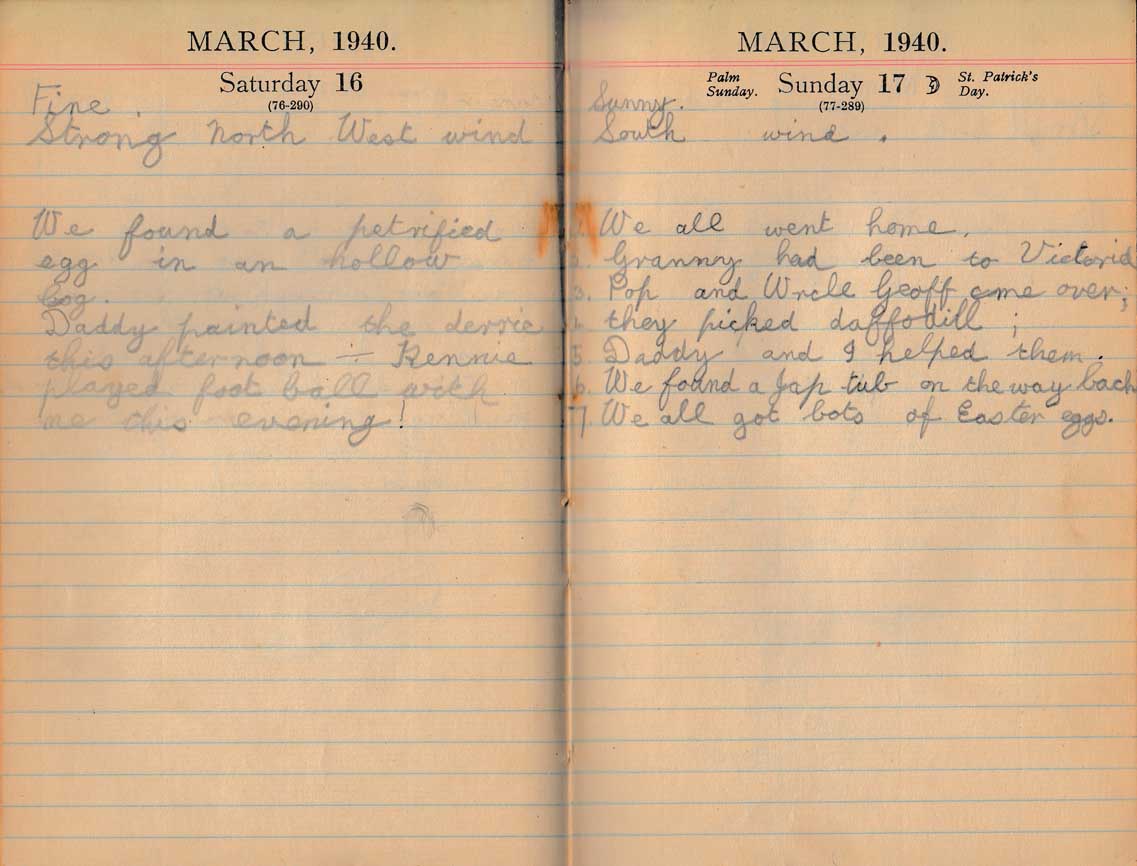 MARCH, 1940.
Saturday 16
(76-290)
Fine.
Strong North West wind
We found a petrified
egg in an hollow
log.
Daddy painted the derrie
this afternoon — Rennie
played foot ball with
me this evening!
MARCH, 1940.
Palm Sunday. Sunday 17 St. Patrick's Day.
(77-289)
Sunny.
South wind.
1. We all went home.
2. Granny had been to Victoria
3. Pop and Uncle Geoff came over;
4. they picked daffodill;
5. Daddy and I helped them.
6. We found a Jap tub on the way back
7. We all got bots of Easter eggs.